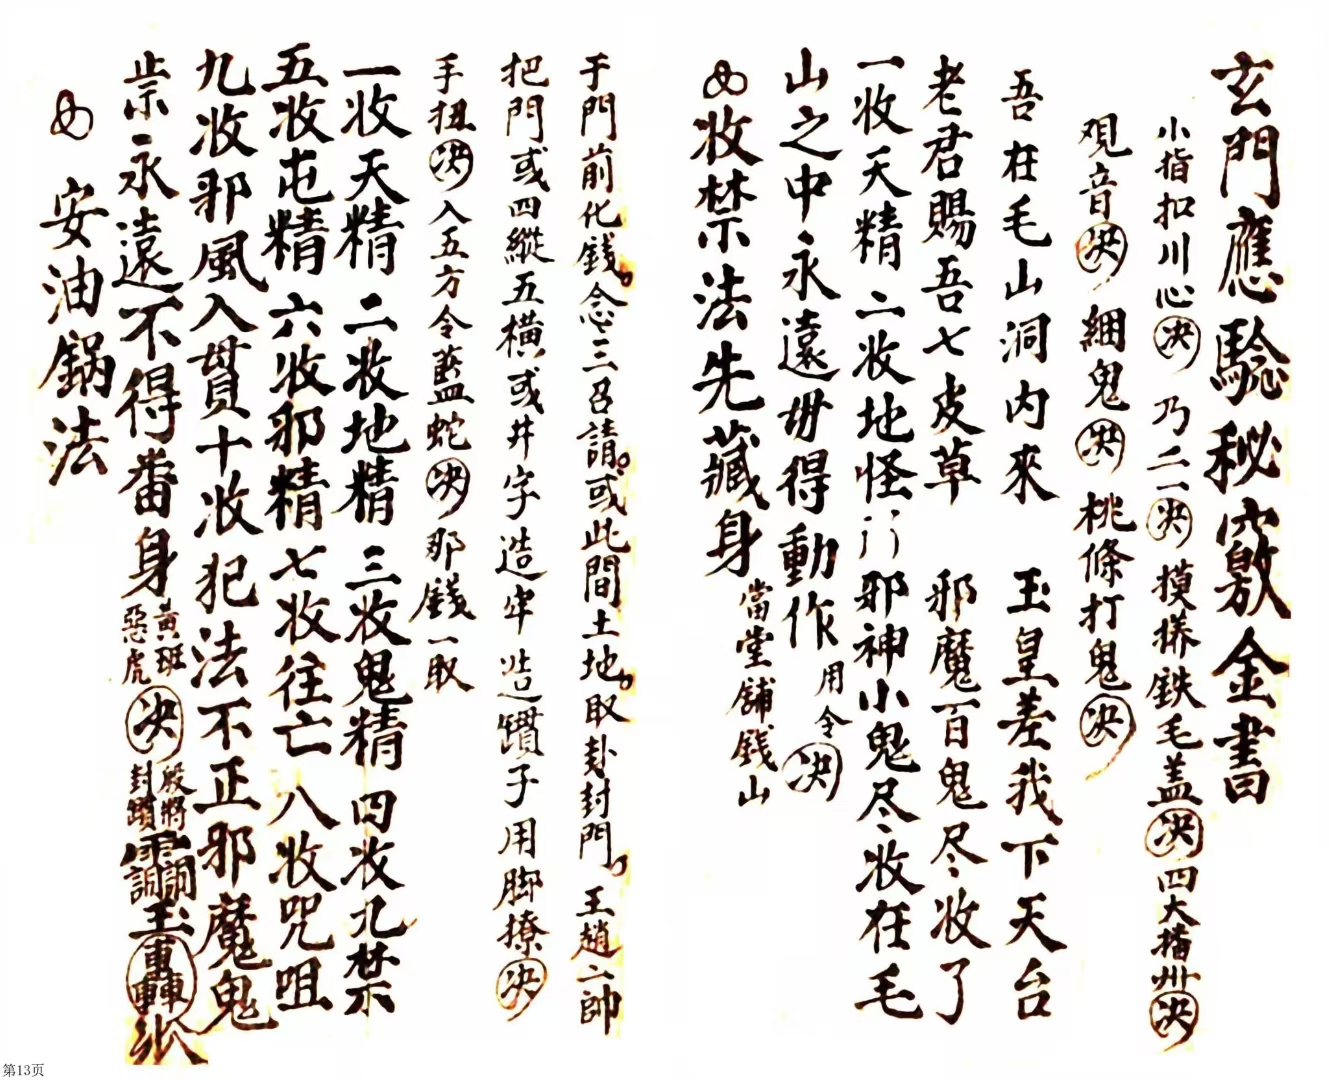 玄門應驗秘竅金書
小指扣川心決乃二一決摸搽鉄毛蓋決四大播卅決
观音決綑鬼決桃條打鬼決
吾在毛山洞内來 玉皇差我下天台
老君賜吾七皮草 邪魔百鬼尽尽收了
一收天精二收地怪 邪神小鬼尽尽收在毛
山之中永遠毋得動作用令決
收禁法先藏身當堂舖錢山
于門前化錢念三召請或此間土地取卦封門王趙二帥
把門或四縱五橫或井字造牢造躓子用脚撩決
手扭決入五方令藍蛇決那錢一取
一收天精二收地精三收鬼精四收九禁
五收屯精六收邪精七收往亡八收咒咀
九收邪風入貫十收犯法不正邪魔鬼
祟永遠不得畨身黃班惡虎決殷將封躓
安油鍋法
第13页